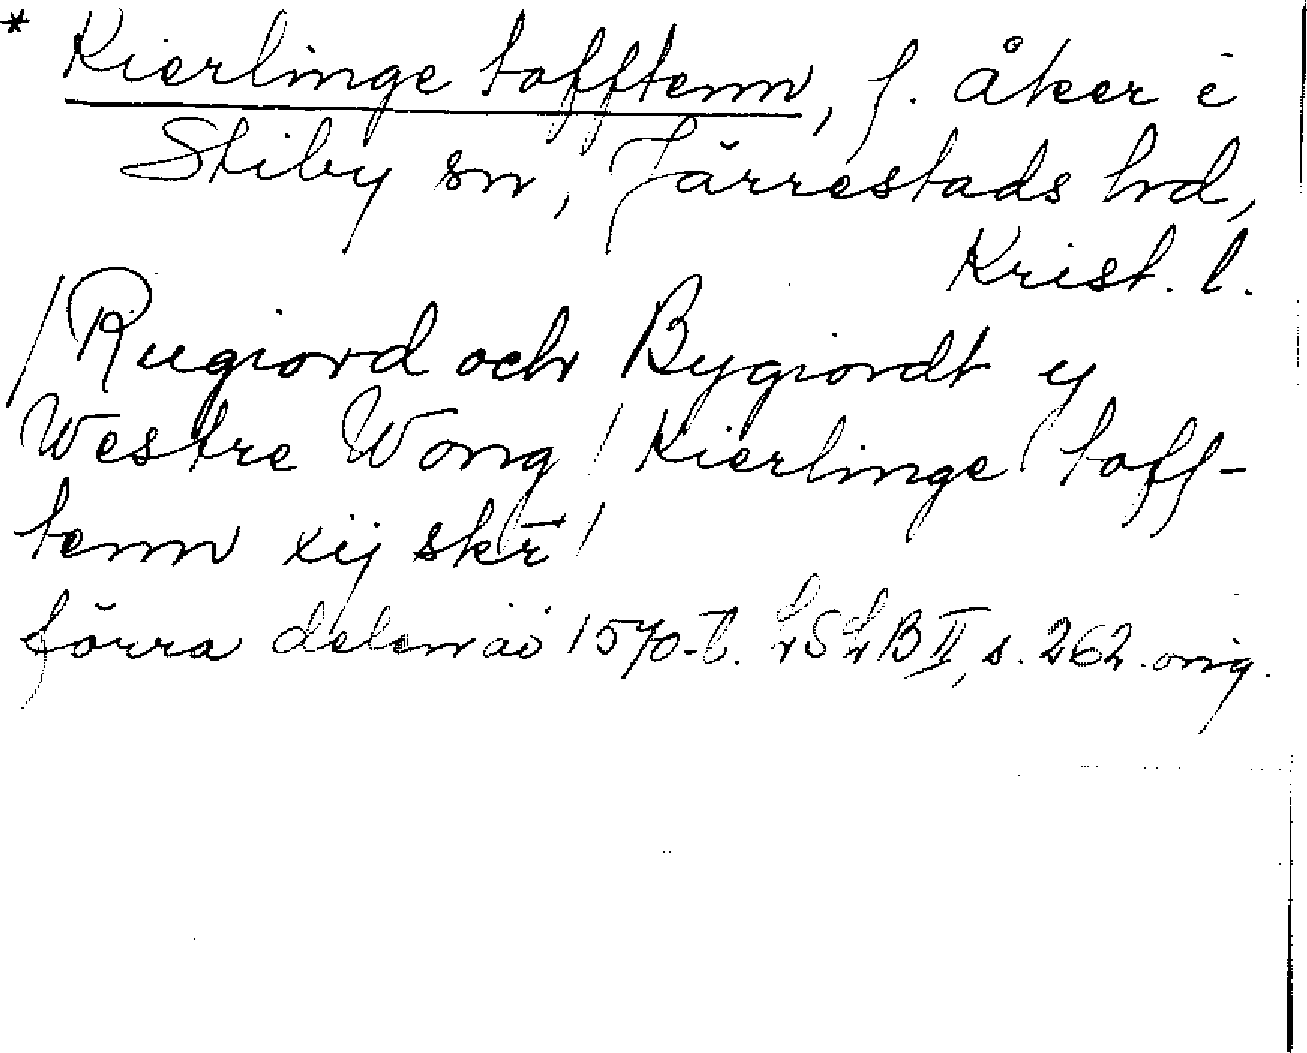 * Kierlinge tofftenn, f. åker i
Stiby sn, Järrestads hd,
Krist. l.
/Rugiord och Bygiordt y
Westre Wong / Kierlinge toff-
tenn xij skr̄ /
förra delen av 1570-t. LSLB II, s. 262. orig.